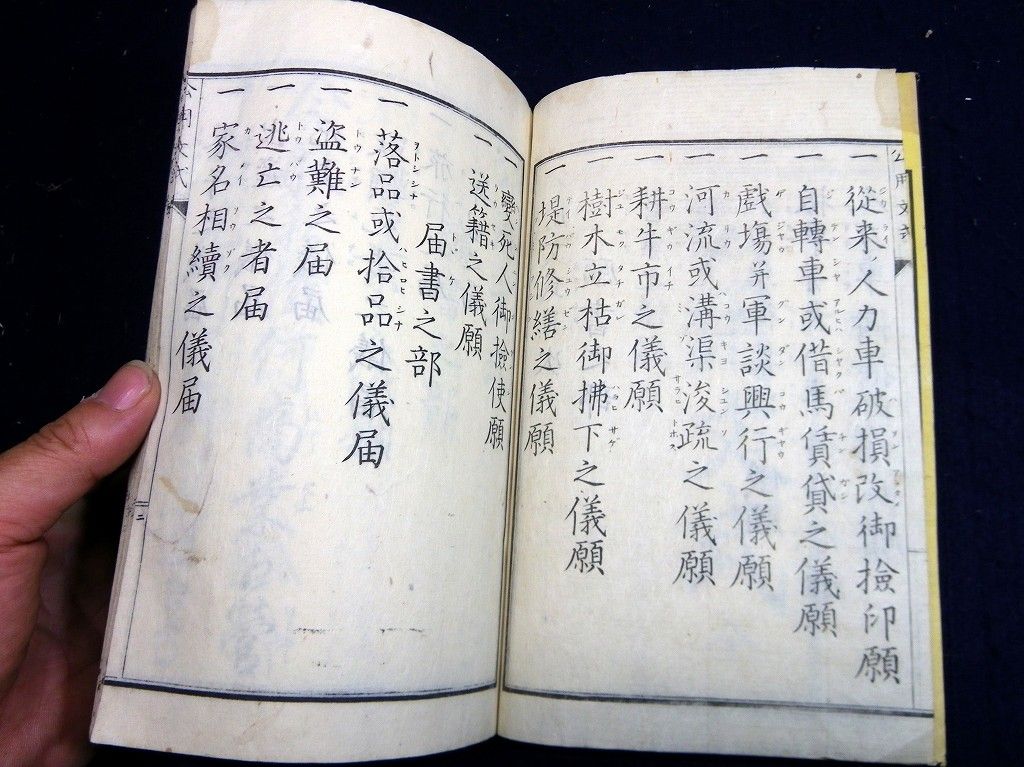 公用文式
一 從來人力車破損改御撿印願
一 自轉車或借馬賃貸之儀願
一 戲塲并軍談興行之儀願
一 河流或溝渠浚疏之儀願
一 耕牛市之儀願
一 樹木立枯御拂下之儀願
一 堤防修繕之儀願
一 變死人御撿使願
一 送籍之儀願
届書之部
一 落品或拾品之儀届
一 盜難之届
一 逃亡之者届
一 家名相續之儀届
公用文式
二